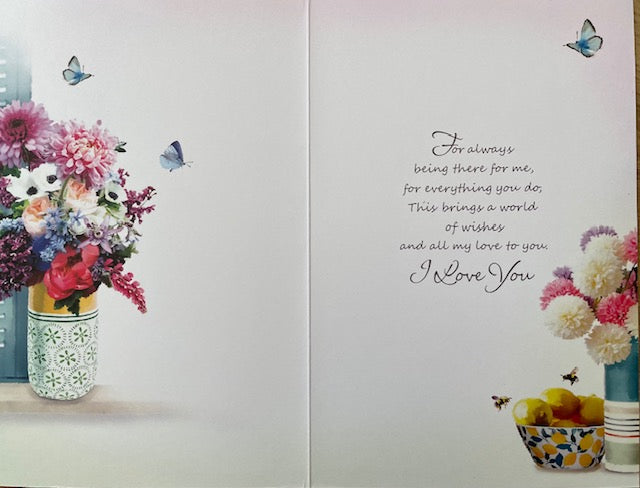 For always
being there for me,
for everything you do,
This brings a world
of wishes
and all my love to you.
I Love You